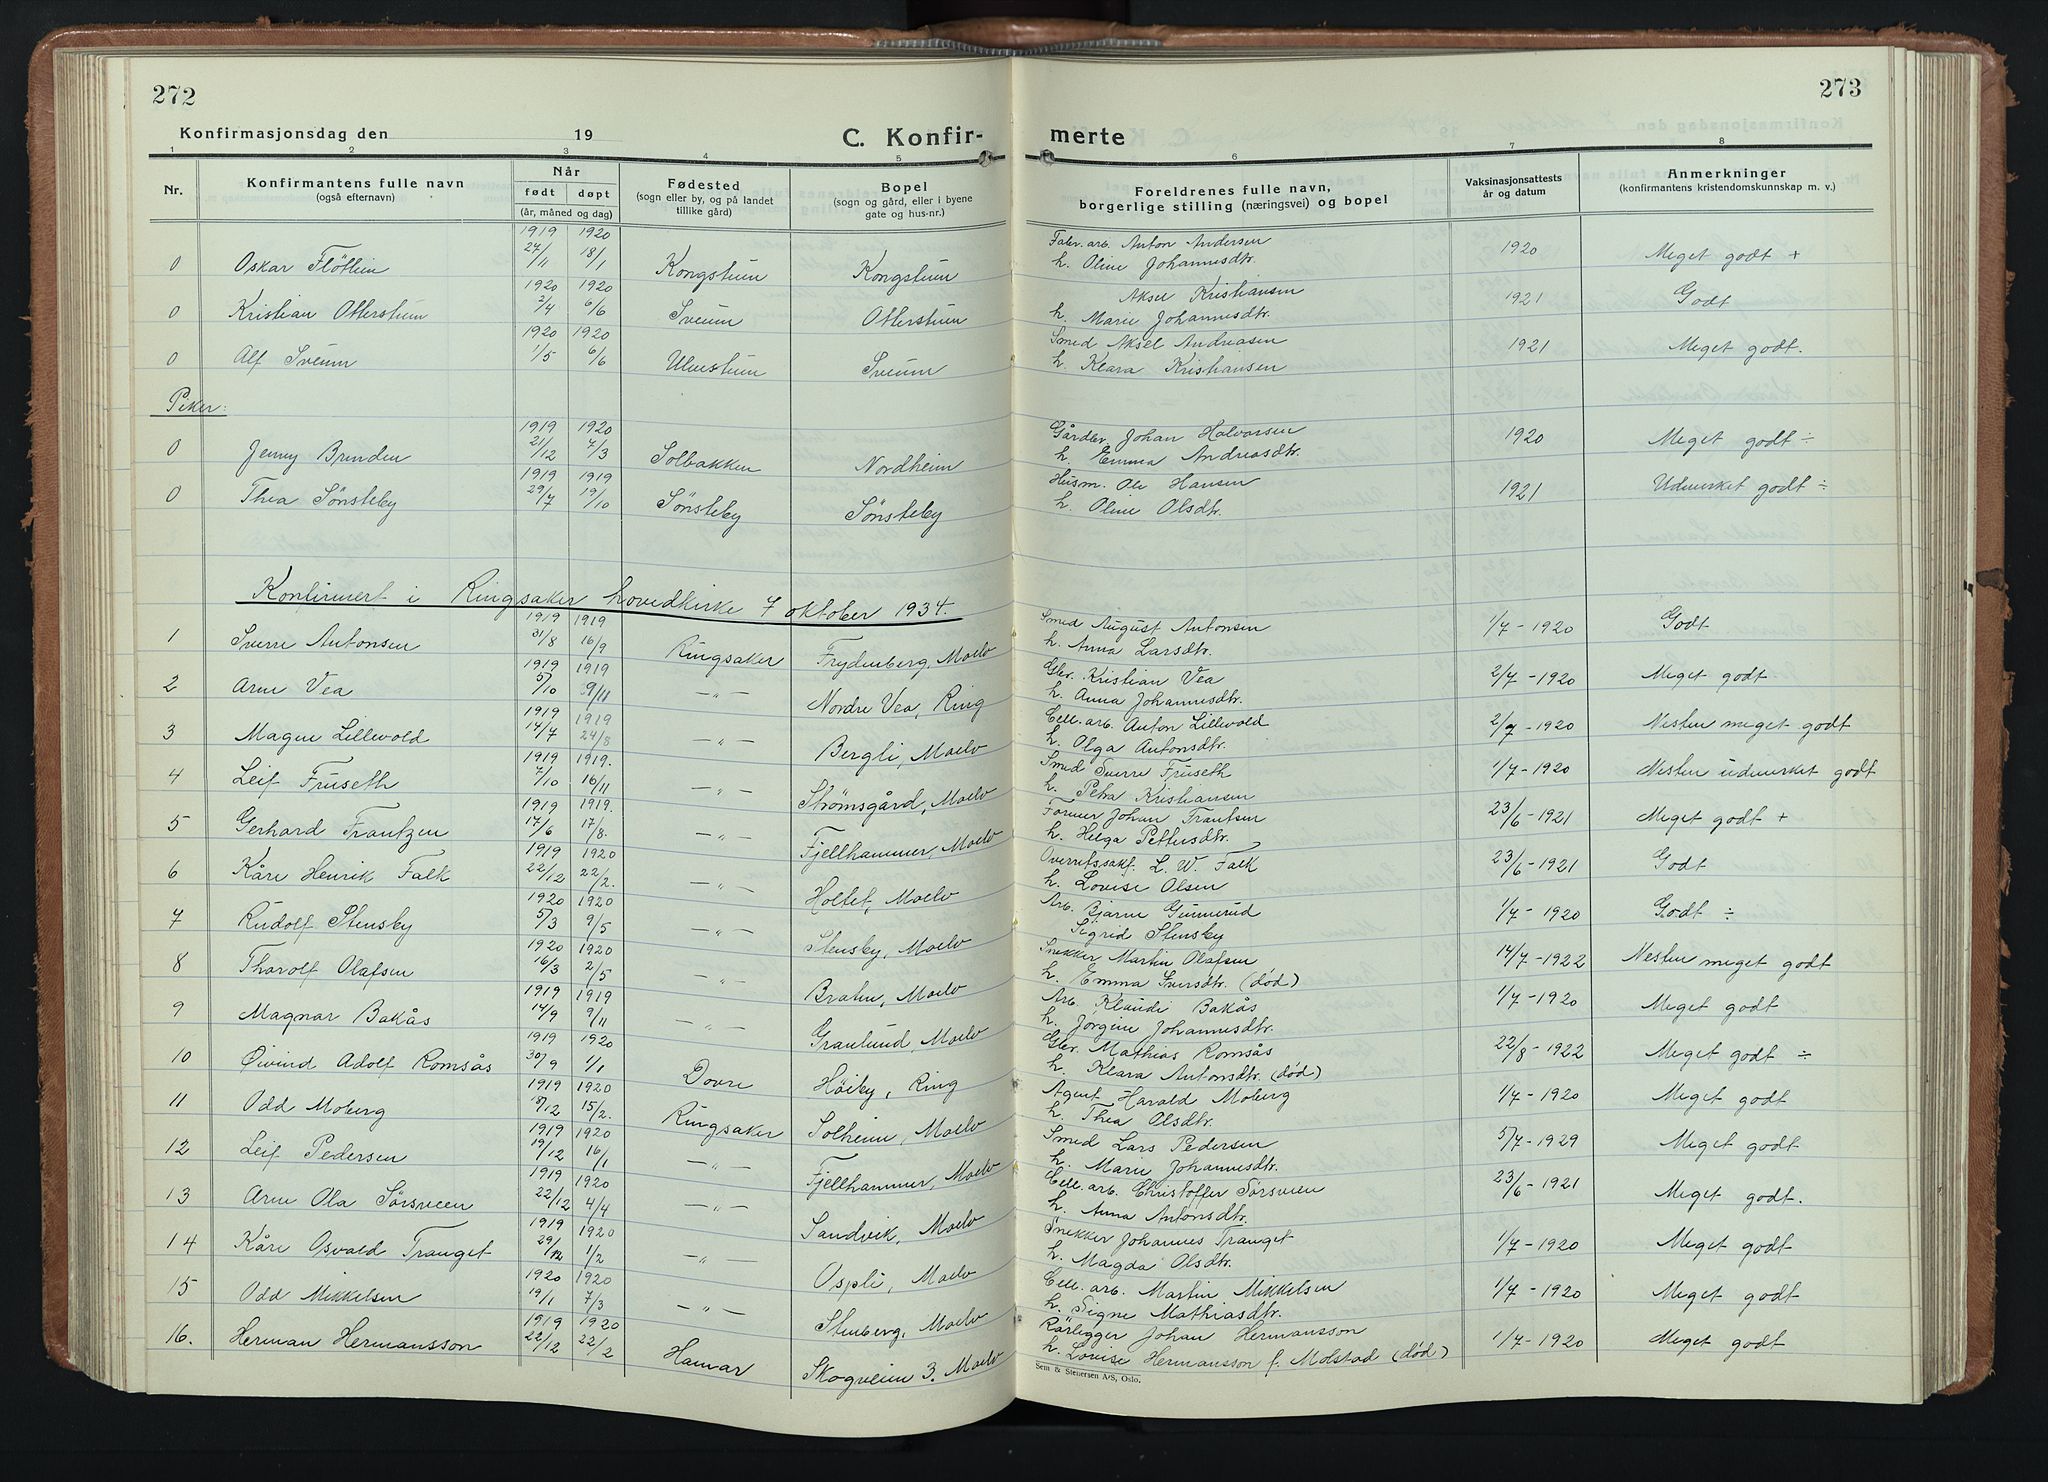 272
Konfirmasjonsdag den 19
C. Konfir-
1 2 3 4 5
Nr.
Konfirmantens fulle navn
(også efternavn)
Når
født døpt
(år, måned og dag)
Fødested
(sogn eller by, og på landet
tillike gård)
Bopel
(sogn og gård, eller i byene
gate og hus-nr.)
1919 1920
0 Oskar Fløtlien 27/11 18/1 Kongstuen Kongstuen
1920 1920
0 Kristian Otterstuen 2/4 6/6 Sveum Otterstuen
1920 1920
0 Alf Sveum 1/5 6/6 Ulvestuen Sveum
Piker:
1919 1920
0 Jenny Brenden 21/12 7/3 Solbakken Nordheim
1919 1919
0 Thea Sønsteby 29/7 19/10 Sønsteby Sønsteby
Konfirmert i Ringsaker hovedkirke 7 oktober 1934.
1919 1919
1 Sverre Antonsen 31/8 16/9 Ringsaker Frydenberg, Moelv
1919 1919
2 Arne Vea 5/10 9/11 —„— Nordre Vea, Ring
1919 1919
3 Magne Lillevold 14/7 24/8 —„— Bergli, Moelv
1919 1919.
4 Leif Fruseth 7/10 16/11 —„— Strømsgård, Moelv
1919 1919.
5 Gerhard Frantzen 17/6 17/8. —„— Fjellhammer, Moelv
1919 1920
6 Kåre Henrik Falk 22/12 22/2. —„— Holtet, Moelv
1920 1920
7 Rudolf Stensby 5/3 9/5 —„— Stensby, Moelv
1920 1920
8 Tharolf Olafsen 16/3 2/5 —„— Braten, Moelv
1919 1919
9 Magnar Bakås 14/9 9/11 —„— Granlund, Moelv
1919 1920
10 Øivind Adolf Romsås 30/9 1/1 Dovre Høiby, Ring
1919 1920
11 Odd Moberg /12 15/2. Ringsaker Solheim, Moelv
1919 1920
12 Leif Pedersen 19/12 16/1 —„— Fjellhammer, Moelv
1919 1920
13 Arne Ola Sørsveen 22/12 4/4 —„— Sandvik, Moelv
1919 1920
14 Kåre Osvald Tranget 29/12 1/2 —„— Ospli, Moelv
1920 1920
15 Odd Mikkelsen 19/1 7/3 —„— Stenberg, Moelv
1919 1920
16. Herman Hermansson 22/12 22/2 Hamar Skogveien 3. Moelv
273
merte
6 7 8
Foreldrenes fulle navn,
borgerlige stilling (næringsvei) og bopel
Vaksinasjonsattests
år og datum
Anmerkninger
(konfirmantens kristendomskunnskap m. v.)
Fabr. arb. Anton Andersen 1920 Meget godt +
h. Oline Johannesdtr.
Aksel Kristiansen 1921 Godt
h. Marie Johannesdtr.
Smed Aksel Andreasen 1921 Meget godt.
h. Klara Kristiansen
Gårdbr. Johan Halvorsen 1920 Meget godt ÷
h. Emma Andreasdtr.
Husm. Ole Hansen 1921 Udmerket godt ÷
h. Oline Olsdtr.
Smed August Antonsen 1/7 - 1920 Godt
h. Anna Larsdtr.
Gbr. Kristian Vea 2/7 - 1920 Meget godt
h. Anna Johannesdtr.
Cell. arb. Anton Lillevold 2/7 - 1920 Nesten meget godt
h. Olga Antonsdtr.
Smed Sverre Fruseth 1/7 - 1920 Nesten udmerket godt
h. Petra Kristiansen
Former Johan Frantsen 23/6 - 1921 Meget godt +
h. Helga Pettersdtr.
Overrettssakf. L. W. Falk 23/6 - 1921 Godt
h. Lovise Olsen
Arb. Bjarne Gunnerud 1/7 - 1920 Godt ÷
Sigrid Stensby
Snekker Martin Olafsen 14/7 - 1922 Nesten meget godt
h. Emma Iversdtr. (død)
Arb. Klaudi Bakås 1/7 - 1920 Meget godt
h. Jørgine Johannesdtr.
Gbr. Mathias Romsås 22/8 - 1922 Meget godt ÷
h. Klara Antonsdtr. (død)
Agent Harald Moberg 1/7 - 1920 Meget godt
h. Thea Olsdtr.
Smed Lars Pedersen 5/7 - 1929 Meget godt
h. Marie Johannesdtr.
Cell. arb. Christoffer Sørsveen 23/6 - 1921 Meget godt.
h. Anna Antonsdtr.
Snekker Johannes Tranget 1/7 - 1920 Meget godt
h. Magda Olsdtr.
Cell. arb. Martin Mikkelsen 1/7 - 1920 Meget godt
h. Signe Mathiasdtr.
Rørlegger Johan Hermansson 1/7 - 1920 Meget godt
h. Lovise Hermansson f. Molstad (død)
Sem & Stenersen A/S, Oslo.